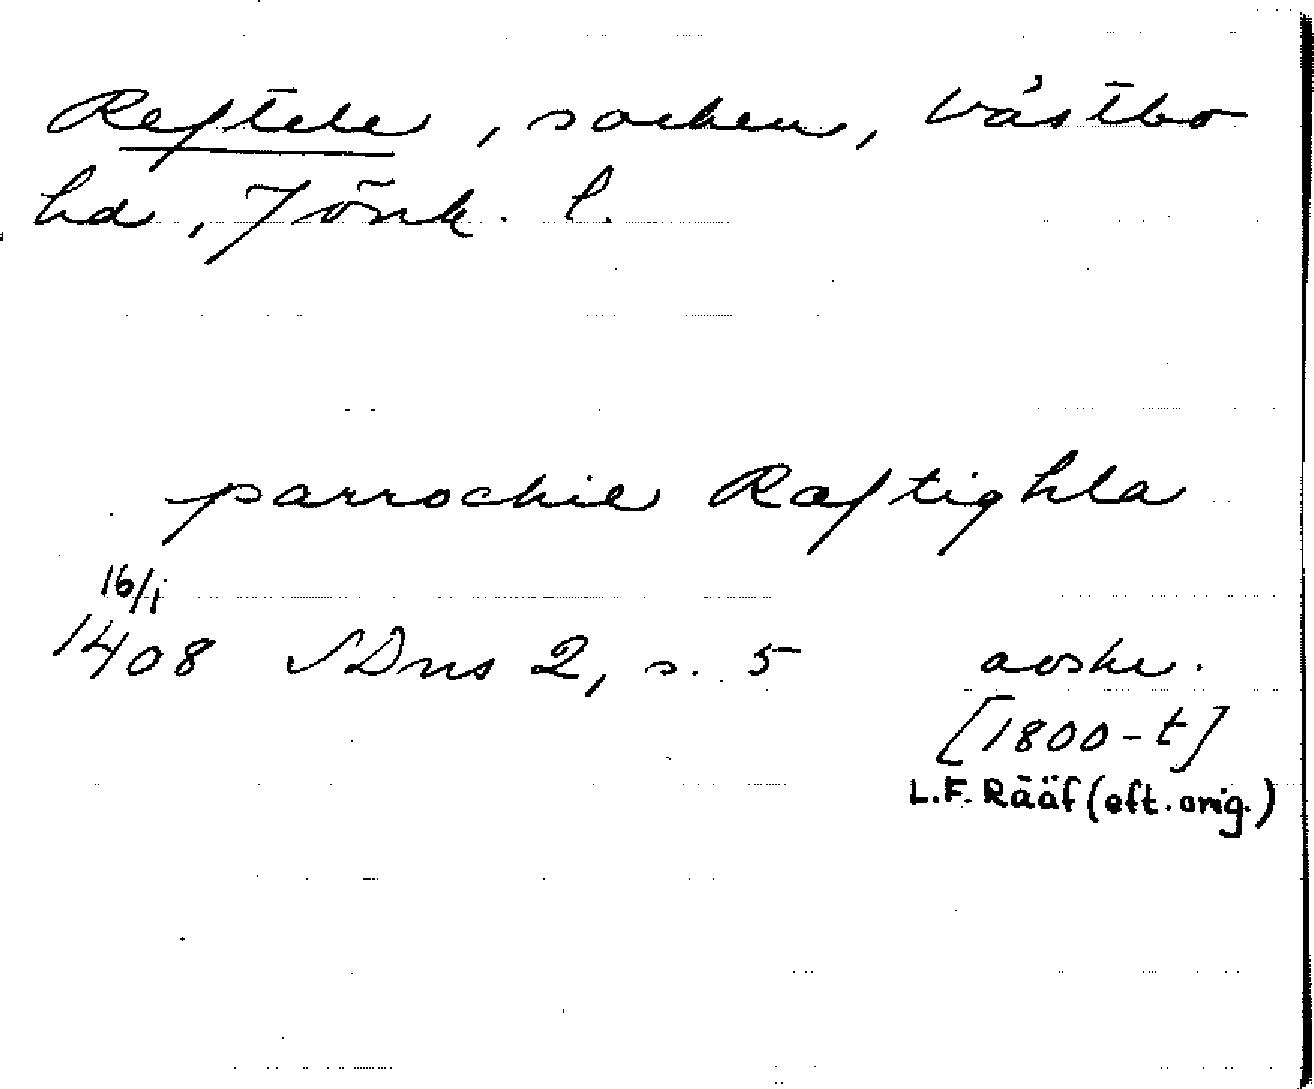 Reftele, socken, Västbo
hd, Jönk. l.
parrochie Raftighla
16/1
1408 SDns 2, s. 5 avskr.
[1800-t]
L.F. Rääf (eft. orig.)